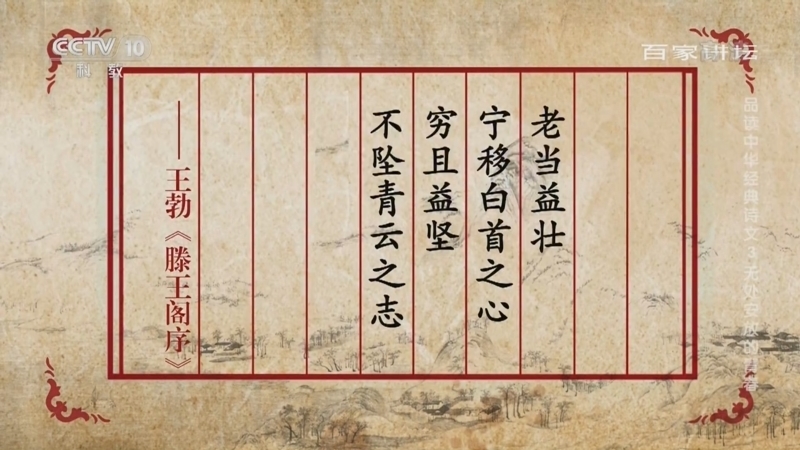 CCTV 10
科教
百家讲坛
品读中华经典诗文 3 无处安放的青春
老当益壮
宁移白首之心
穷且益坚
不坠青云之志
——王勃《滕王阁序》